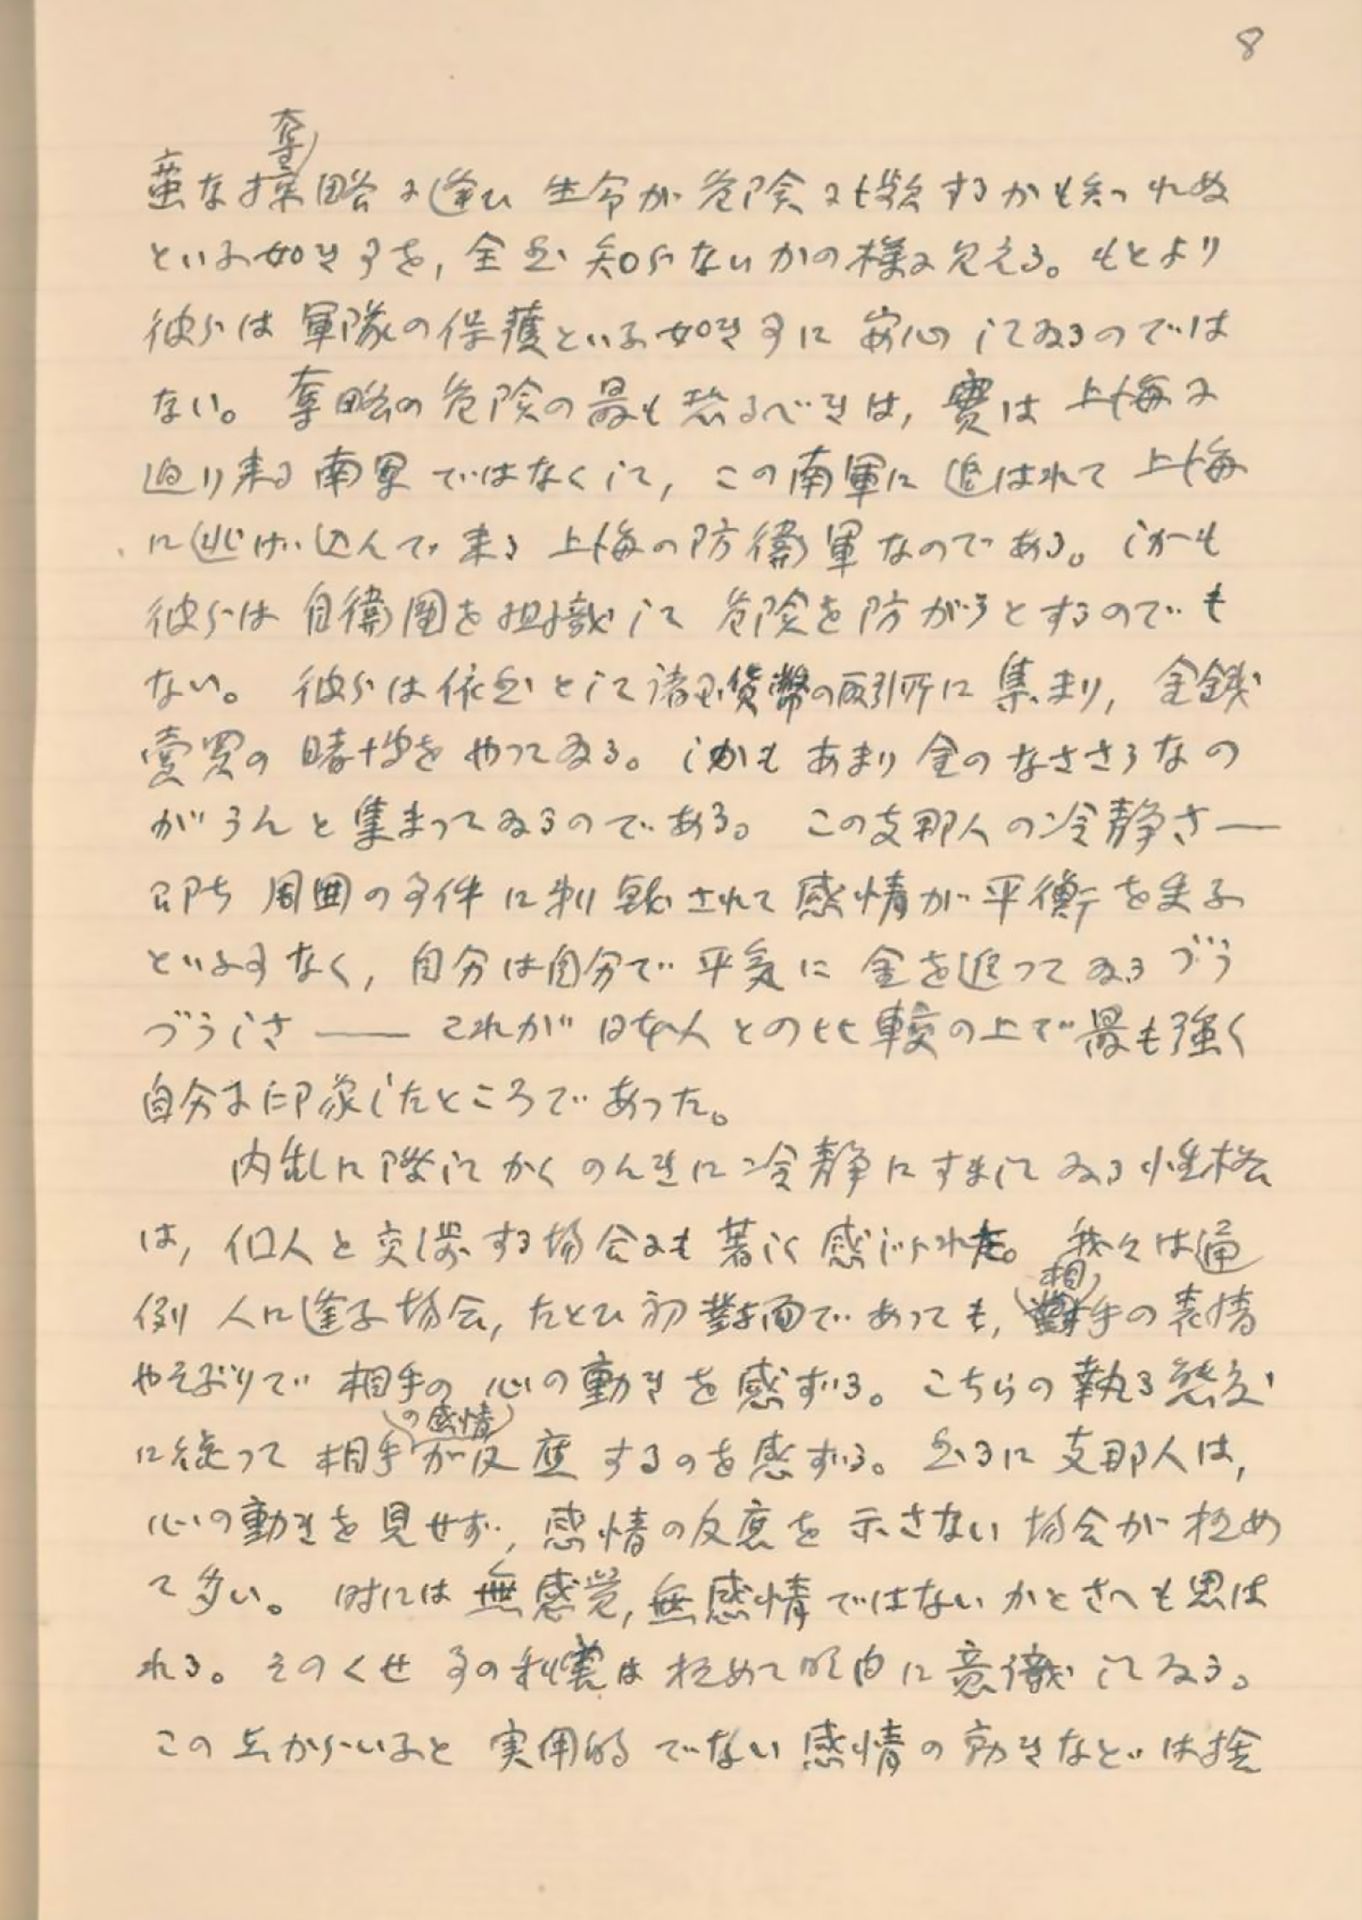 8
奪
蛮な掠略に逢ひ 生命が危険に瀕するかも知れぬ
といふ如き事を, 全然知らないかの様に見える。もとより
彼らは 軍隊の保護といふ如き事に 安心してゐるのでは
ない。 奪略の危険の最も恐るべきは, 實は上海に
迫り来る南軍ではなくして, この南軍に追はれて上海
に逃げ込んで来る上海の防衛軍なのである。しかも
彼らは自衛團を組織して 危険を防がうとするのでも
ない。 彼らは依然として諸国貨幣の取引所に集まり, 金銭
賣買の賭博をやつてゐる。しかもあまり金のなささうなの
がうんと集まつてゐるのである。 この支那人の冷静さ——
即ち 周囲の事件に刺戟されて感情が平衡を失ふ
といふ事なく, 自分は自分で平気に金を追つてゐるづう
づうしさ—— これが日本人との比較の上で最も強く
自分に印象したところであつた。
内乱に際してかくのんきに冷静にすましてゐる性格
は, 個人と交渉する場合にも著しく感じられた。 我々は通
相
例 人に逢ふ場合, たとひ初対面であつても, 手の表情
やそぶりで 相手の心の動きを感ずる。こちらの執る態度
の感情
に従つて 相手が反應するのを感ずる。然るに支那人は,
心の動きを見せず, 感情の反應を示さない場合が極め
て多い。 時には無感覚, 無感情ではないかとさへも思は
れる。そのくせ 事の利害は極めて明白に意識してゐる。
この点からいふと 実用的でない感情の動きなどは捨